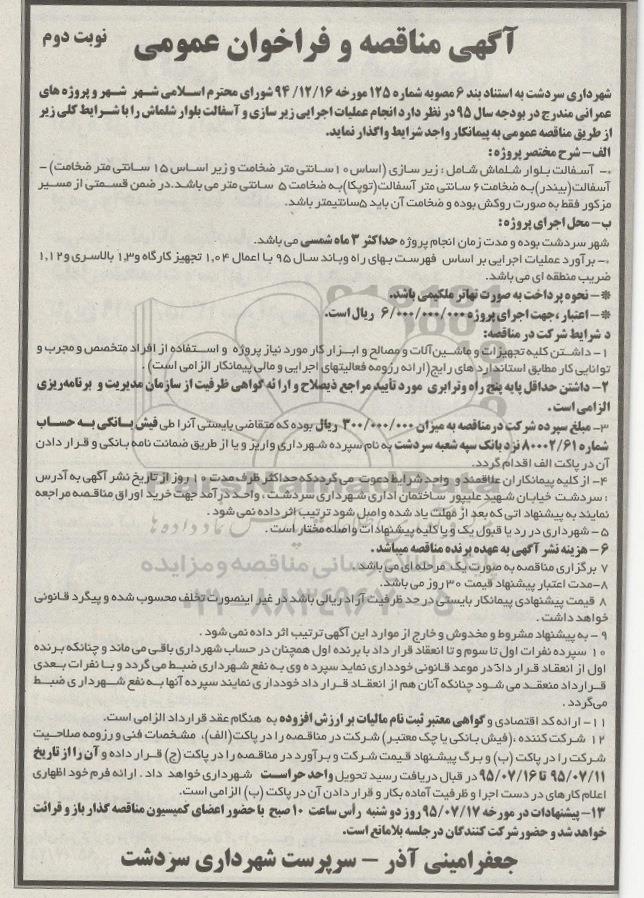 آگهی مناقصه و فراخوان عمومی
نوبت دوم
شهرداری سردشت به استناد بند ۶ مصوبه شماره ۱۲۵ مورخه ۹۴/۱۲/۱۶ شورای محترم اسلامی شهر شهر و پروژه های
عمرانی مندرج در بودجه سال ۹۵ در نظر دارد انجام عملیات اجرایی زیر سازی و آسفالت بلوار شلماش را با شرایط کلی زیر
از طریق مناقصه عمومی به پیمانکار واجد شرایط واگذار نماید.
الف- شرح مختصر پروژه :
۰- آسفالت بلوار شلماش شامل : زیر سازی (اساس ۱۰سانتی متر ضخامت و زیر اساس ۱۵ سانتی متر ضخامت) -
آسفالت(بیندر)به ضخامت ۶ سانتی متر آسفالت(توپکا)به ضخامت ۵ سانتی متر می باشد.در ضمن قسمتی از مسیر
مزکور فقط به صورت روکش بوده و ضخامت آن باید ۵سانتیمتر باشد.
ب- محل اجرای پروژه :
شهر سردشت بوده و مدت زمان انجام پروژه حداکثر ۳ ماه شمسی می باشد.
۰- برآورد عملیات اجرایی بر اساس فهرست بهای راه وباند سال ۹۵ با اعمال ۱٫۰۴ تجهیز کارگاه و۱٫۳ بالاسری و۱٫۱۲
ضریب منطقه ای می باشد.
*- نحوه پرداخت به صورت تهاتر ملکیمی باشد.
*- اعتبار ،جهت اجرای پروژه ۶/۰۰۰/۰۰۰/۰۰۰ ریال است.
د شرایط شرکت در مناقصه:
۱- داشتن کلیه تجهیزات و ماشین آلات و مصالح و ابزار کار مورد نیاز پروژه و استفاده از افراد متخصص و مجرب و
توانایی کار مطابق استاندارد های رایج(ارائه رزومه فعالیتهای اجرایی و مالی پیمانکار الزامی است) .
۲- داشتن حداقل پایه پنج راه وترابری مورد تأیید مراجع ذیصلاح و ارائه گواهی ظرفیت از سازمان مدیریت و برنامه‌ریزی
الزامی است .
۳- مبلغ سپرده شرکت در مناقصه به میزان ۳۰۰/۰۰۰/۰۰۰ ریال بوده که متقاضی بایستی آنرا طی فیش بانکی به حساب
شماره ۸۰۰۰۲/۶۱ نزد بانک سپه شعبه سردشت به نام سپرده شهرداری واریز و یا از طریق ضمانت نامه بانکی و قرار دادن
آن در پاکت الف اقدام گردد.
۴- از کلیه پیمانکاران علاقمند و واجد شرایط دعوت می گرددکه حداکثر ظرف مدت ۱۰ روز از تاریخ نشر آگهی به آدرس
: سردشت خیابان شهید علیپور ساختمان اداری شهرداری سردشت ، واحد درآمد جهت خرید اوراق مناقصه مراجعه
نمایند به پیشنهاد اتی که بعد از مهلت یاد شده واصل شود ترتیب اثر داده نمی شود .
۵- شهرداری در رد یا قبول یک و یا کلیه پیشنهادات واصله مختار است .
۶- هزینه نشر آگهی به عهده برنده مناقصه میباشد .
۷ برگزاری مناقصه به صورت یک مرحله ای می باشد .
۸-مدت اعتبار پیشنهاد قیمت ۳۰ روز می باشد.
۸ قیمت پیشنهادی پیمانکار بایستی در حد ظرفیت آزاد ریالی باشد در غیر اینصورت تخلف محسوب شده و پیگرد قانونی
خواهد داشت .
۹- به پیشنهاد مشروط و مخدوش و خارج از موارد این آگهی ترتیب اثر داده نمی شود .
۱۰ سپرده نفرات اول تا سوم و تا انعقاد قرار داد با برنده اول همچنان در حساب شهرداری باقی می ماند و چنانکه برنده
اول از انعقاد قرار داد در موعد قانونی خودداری نماید سپرده وی به نفع شهرداری ضبط می گردد و با نفرات بعدی
قرارداد منعقد می شود چنانکه آنان هم از انعقاد قرار داد خودداری نمایند سپرده آنها به نفع شهرداری ضبط
می‌گردد .
۱۱- ارائه کد اقتصادی و گواهی معتبر ثبت نام مالیات بر ارزش افزوده به هنگام عقد قرارداد الزامی است.
۱۲ شرکت کننده ،(فیش بانکی یا چک معتبر) شرکت در مناقصه را در پاکت(الف)، مشخصات فنی و رزومه صلاحیت
شرکت را در پاکت (ب) و برگ پیشنهاد قیمت شرکت و برآورد در مناقصه را در پاکت (ج) قرار داده و آن را از تاریخ
۹۵/۰۷/۱۱ تا ۹۵/۰۷/۱۶ در قبال دریافت رسید تحویل واحد حراست شهرداری خواهد داد . ارائه فرم خود اظهاری
اعلام کارهای در دست اجرا و ظرفیت آماده بکار و قرار دادن آن در پاکت (ب) الزامی است.
۱۳- پیشنهادات در مورخه ۹۵/۰۷/۱۷ روز دو شنبه رأس ساعت ۱۰ صبح با حضور اعضای کمیسیون مناقصه گذار باز و قرائت
خواهد شد و حضور شرکت کنندگان در جلسه بلامانع است.
جعفر امینی آذر - سرپرست شهرداری سردشت